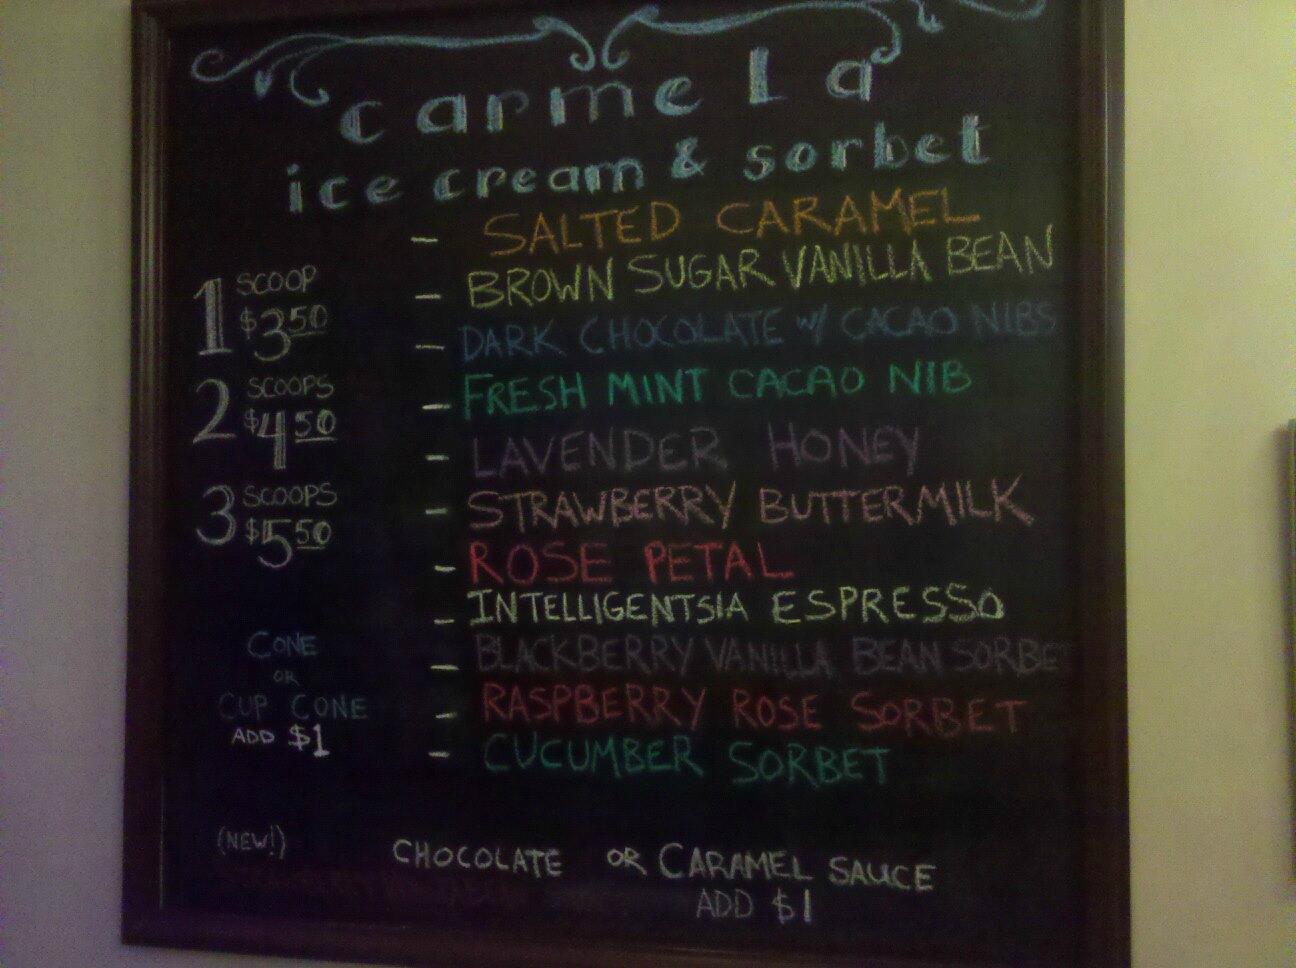 carmela
ice cream & sorbet
- SALTED CARAMEL
- BROWN SUGAR VANILLA BEAN
- DARK CHOCOLATE w/ CACAO NIBS
- FRESH MINT CACAO NIB
- LAVENDER HONEY
- STRAWBERRY BUTTERMILK
- ROSE PETAL
- INTELLIGENTSIA ESPRESSO
- BLACKBERRY VANILLA BEAN SORBET
- RASPBERRY ROSE SORBET
- CUCUMBER SORBET
1 SCOOP
$3.50
2 SCOOPS
$4.50
3 SCOOPS
$5.50
CONE
OR
CUP CONE
ADD $1
(NEW!) CHOCOLATE OR CARAMEL SAUCE
ADD $1